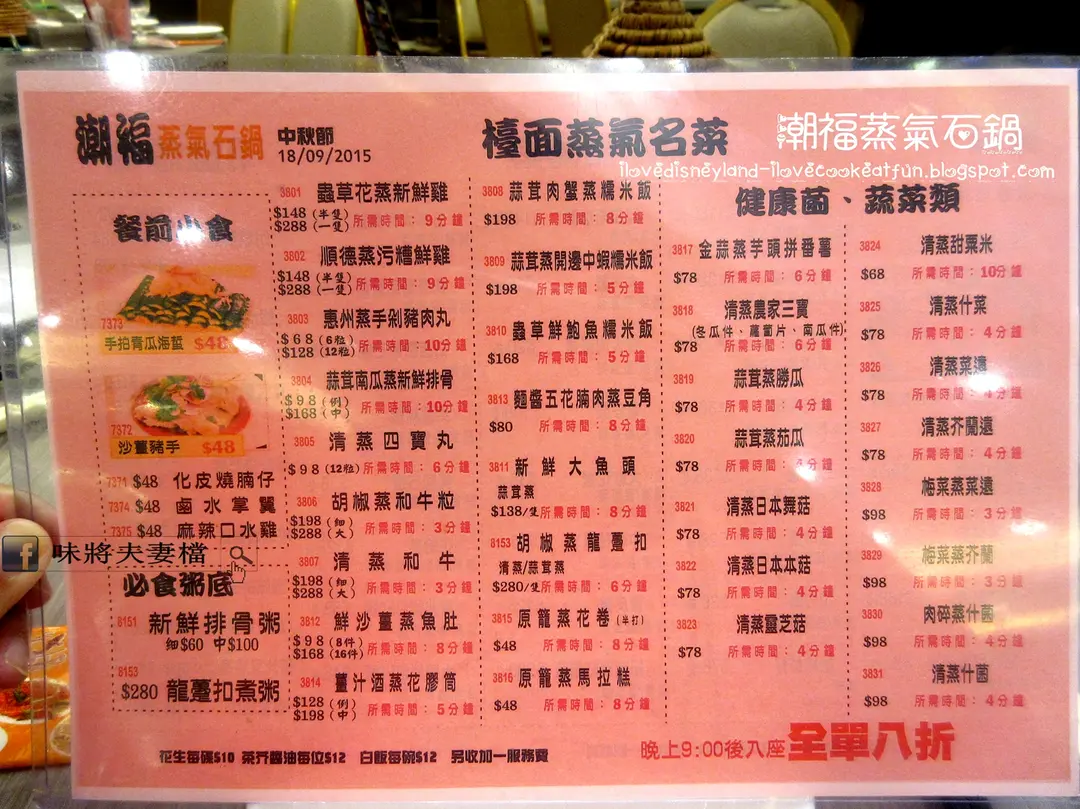 潮福 蒸氣石鍋 中秋節
18/09/2015
檯面蒸氣名菜
潮福蒸氣石鍋
ilovedisneyland-ilovecookeatfun.blogspot.com
餐前小食
7373
手拍青瓜海蜇 $48
7372
沙薑豬手 $48
7371 $48 化皮燒腩仔
7374 $48 鹵水掌翼
7375 $48 麻辣口水雞
味將夫妻檔
必食粥底
8151 新鮮排骨粥
細$60 中$100
8153
$280 龍躉扣煮粥
3801 蟲草花蒸新鮮雞
$148 (半隻)
$288 (一隻) 所需時間：9分鐘
3802 順德蒸污糟鮮雞
$148 (半隻)
$288 (一隻) 所需時間：9分鐘
3803 惠州蒸手剁豬肉丸
$68 (6粒)
$128 (12粒) 所需時間：10分鐘
3804 蒜茸南瓜蒸新鮮排骨
$98 (例)
$168 (中) 所需時間：10分鐘
3805 清蒸四寶丸
$98 (12粒) 所需時間：6分鐘
3806 胡椒蒸和牛粒
$198 (細)
$288 (大) 所需時間：3分鐘
3807 清蒸和牛
$198 (細)
$288 (大) 所需時間：3分鐘
3812 鮮沙薑蒸魚肚
$98 (8件)
$168 (16件) 所需時間：8分鐘
3814 薑汁酒蒸花膠筒
$128 (例)
$198 (中) 所需時間：5分鐘
3808 蒜茸肉蟹蒸糯米飯
$198 所需時間：8分鐘
3809 蒜茸蒸開邊中蝦糯米飯
$198 所需時間：5分鐘
3810 蟲草鮮鮑魚糯米飯
$168 所需時間：5分鐘
3813 麵醬五花腩肉蒸豆角
$80 所需時間：8分鐘
3811 新鮮大魚頭
蒜茸蒸
$138/隻 所需時間：8分鐘
8153 胡椒蒸龍躉扣
清蒸/蒜茸蒸
$280/隻 所需時間：6分鐘
3815 原籠蒸花卷(半打)
$48 所需時間：8分鐘
3816 原籠蒸馬拉糕
$48 所需時間：8分鐘
健康菌、蔬菜類
3817 金蒜蒸芋頭拼番薯
$78 所需時間：6分鐘
3818 清蒸農家三寶
(冬瓜件、蘿蔔片、南瓜件)
$78 所需時間：6分鐘
3819 蒜茸蒸勝瓜
$78 所需時間：4分鐘
3820 蒜茸蒸茄瓜
$78 所需時間：4分鐘
3821 清蒸日本舞菇
$78 所需時間：4分鐘
3822 清蒸日本本菇
$78 所需時間：4分鐘
3823 清蒸靈芝菇
$78 所需時間：4分鐘
3824 清蒸甜粟米
$68 所需時間：10分鐘
3825 清蒸什菜
$78 所需時間：4分鐘
3826 清蒸菜遠
$78 所需時間：4分鐘
3827 清蒸芥蘭遠
$78 所需時間：4分鐘
3828 梅菜蒸菜遠
$98 所需時間：3分鐘
3829 梅菜蒸芥蘭
$98 所需時間：3分鐘
3830 肉碎蒸什菌
$98 所需時間：4分鐘
3831 清蒸什菌
$98 所需時間：4分鐘
花生每碟$10 茶芥醬油每位$12 白飯每碗$12 另收加一服務費
晚上9:00後入座全單八折